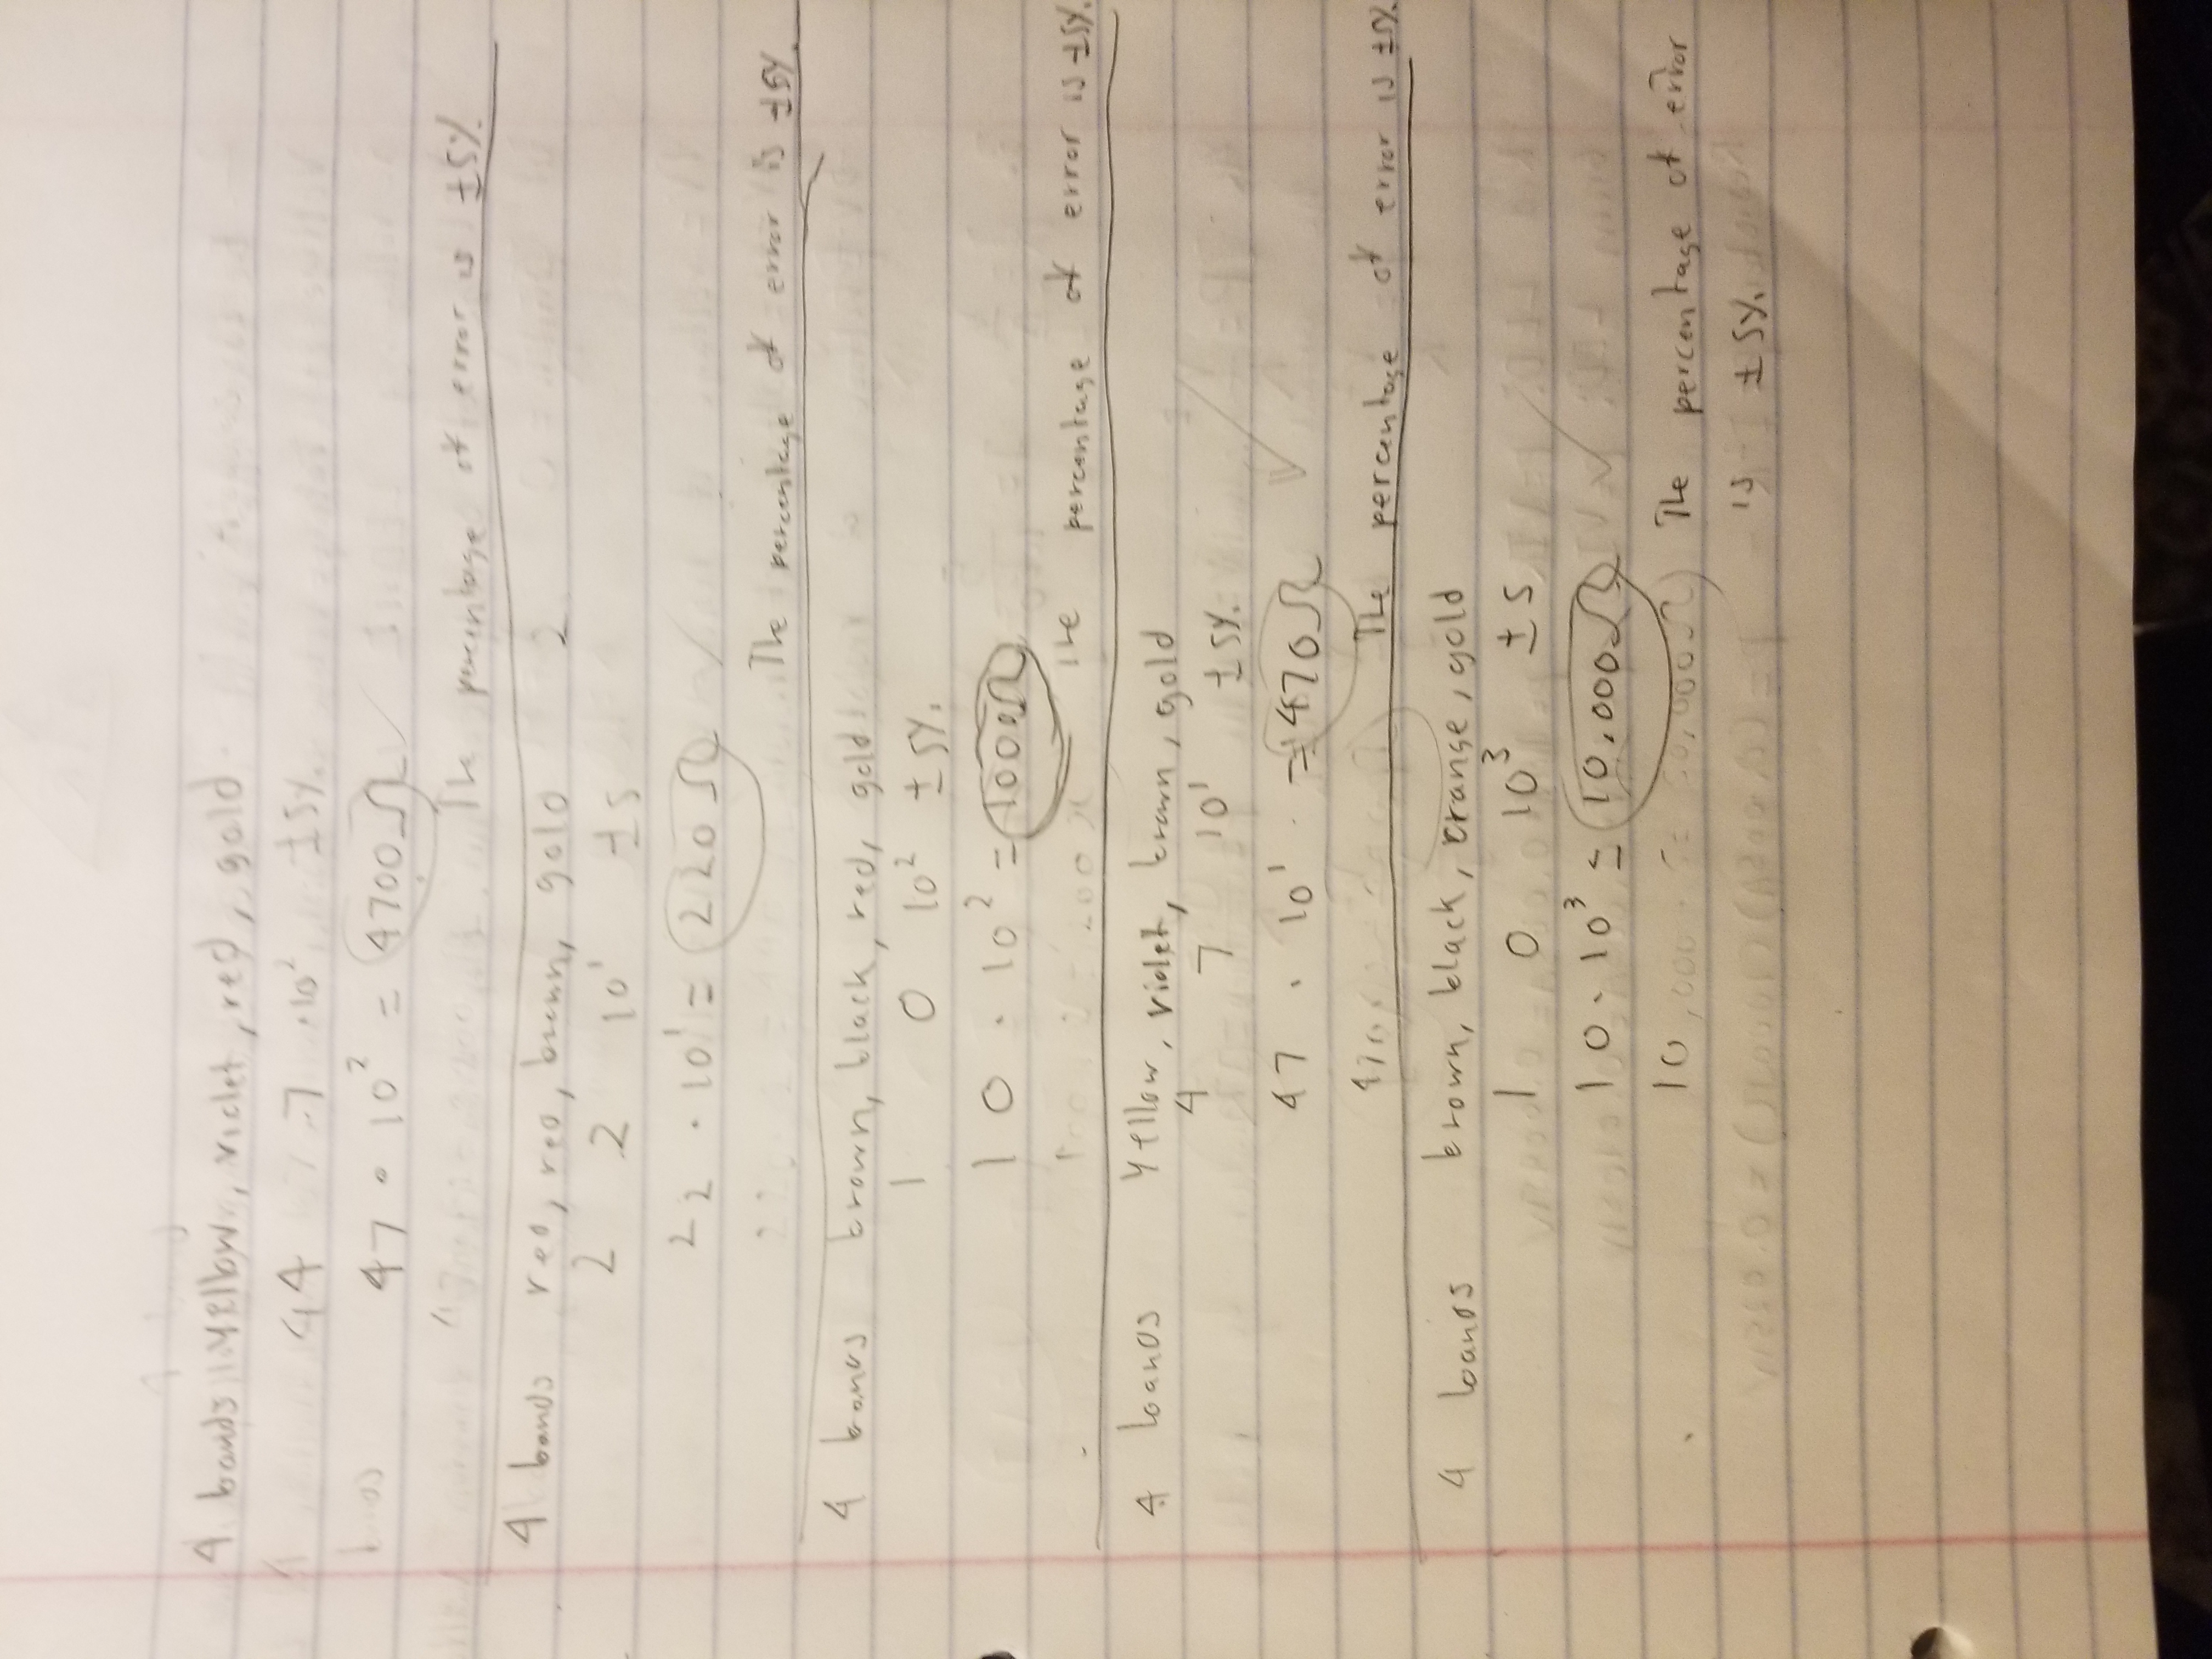 4 bands yellow, violet, red, gold
4 7 ·10² ±5%
47 · 10² = 4700Ω ✓
The percentage of error is ±5%.
4 bands red, red, brown, gold 2
2 2 10¹ ±5
22 · 10¹ = 220Ω
The percentage of error is ±5%
4 bands brown, black, red, gold
1 0 10² ±5%.
10 · 10² = 1000Ω
The percentage of error is ±5%.
4 bands yellow, violet, brown, gold
4 7 10¹ ±5%.
47 · 10¹ = 470Ω ✓
The percentage of error is ±5%.
4 bands brown, black, orange, gold
1 0 10³ ±5
10 · 10³ = 10,000Ω ✓
10 The percentage of error
is ±5%.